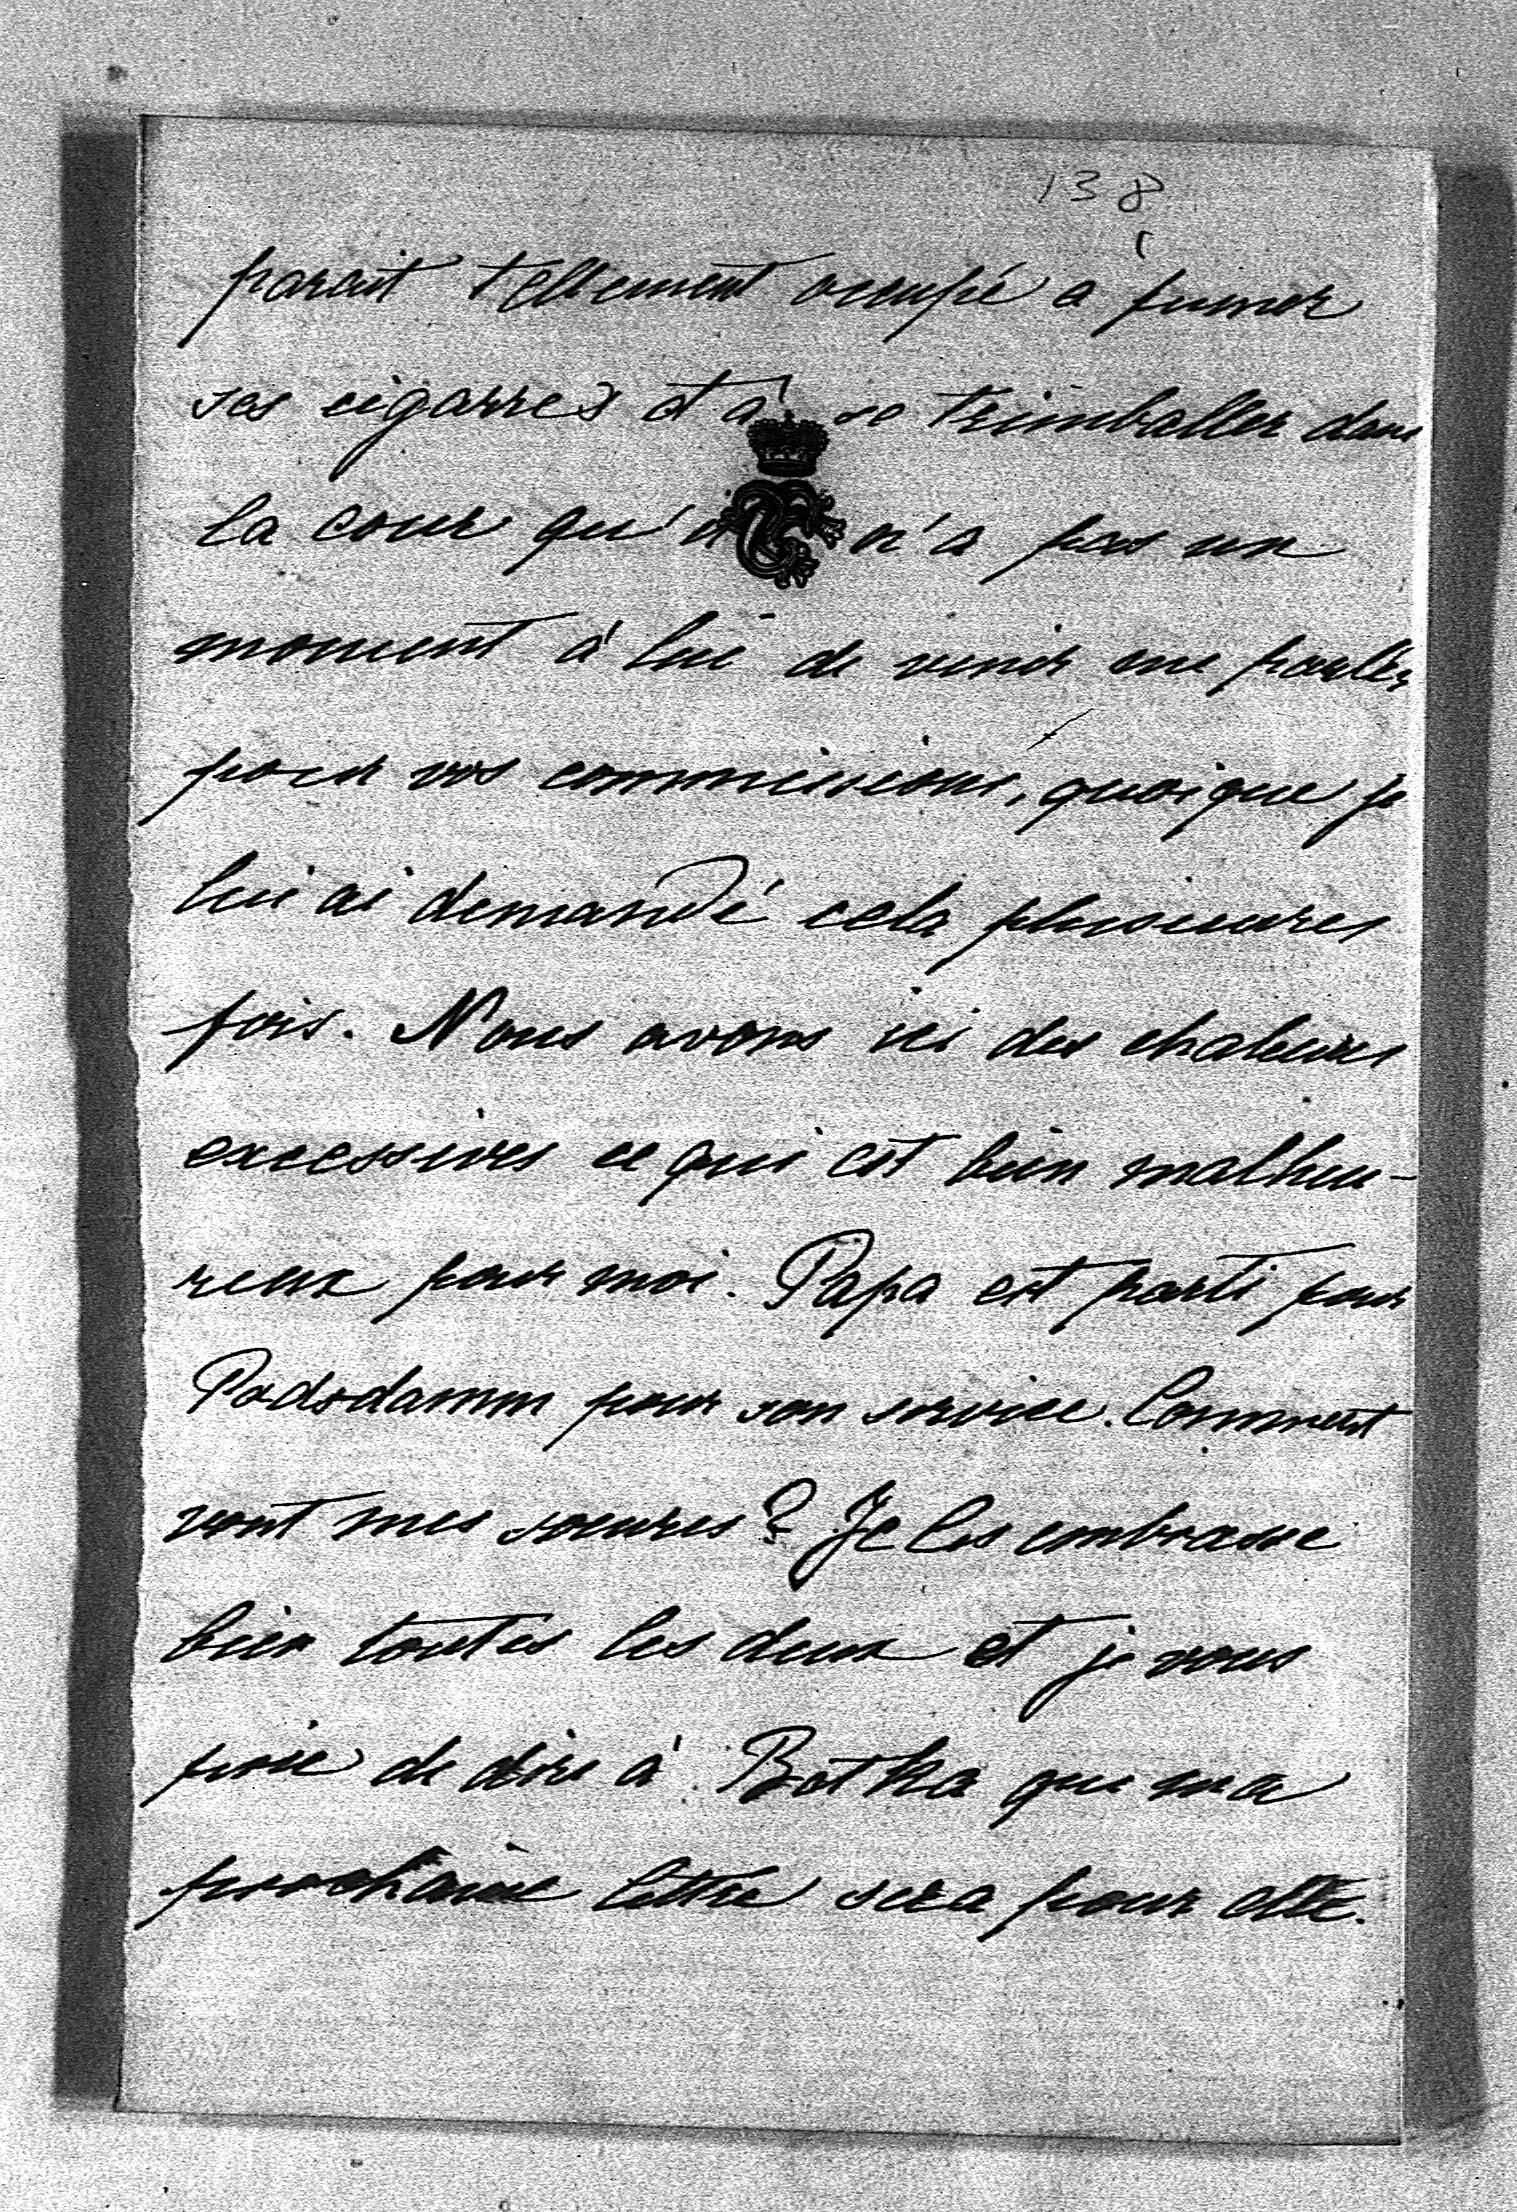 138
parait tellement occupé à fumer
ses cigarres et à se trimballer dans
la cour qu'il n'a pas un
moment à lui de venir me parler
pour vos commissions, quoique je
lui ai demandé cela plusieures
fois. Nous avons ici des chaleures
excessives ce qui est bien malheu-
reux pour moi. Papa est parti pour
Podsdamm pour son service. Comment
vont mes soeures? Je les embrasse
bien toutes les deux et je vous
prie de dire à Botka que ma
prochaine lettre sera pour elle.